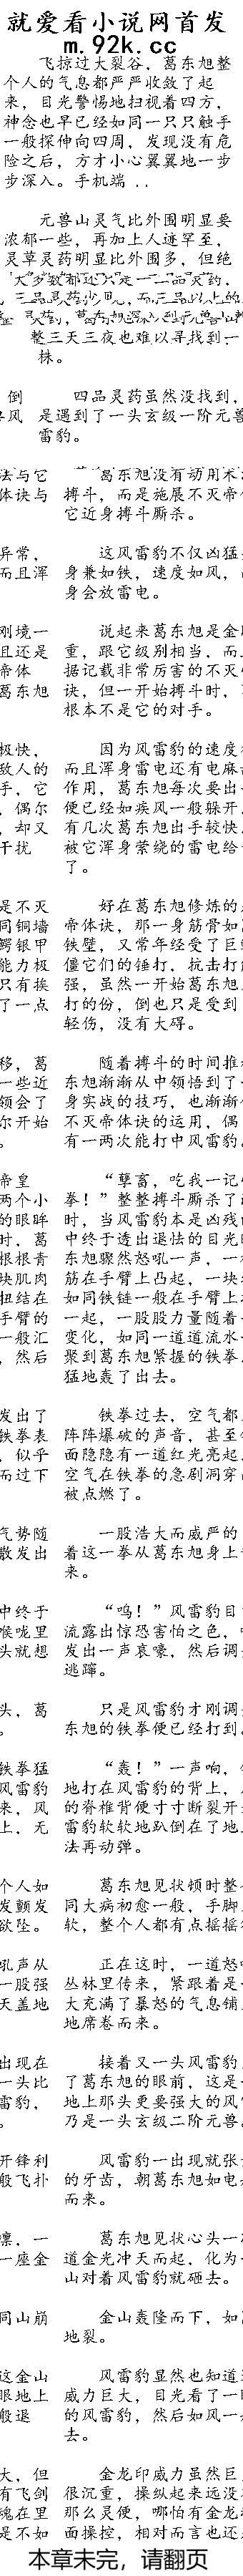 就爱看小说网首发
m.92k.cc
飞掠过大裂谷，葛东旭整
个人的气息都严严收敛了起
来，目光警惕地扫视着四方，
神念也早已经如同一只只触手
一般探伸向四周，发现没有危
险之后，方才小心翼翼地一步
步深入。手机端 ..
元兽山灵气比外围明显要
浓郁一些，再加上人迹罕至，
灵草灵药明显比外围多，但绝
大多数都还只是一二品灵药，
三品灵药少见，而三品以上的
灵药，葛东旭深入到元兽山
整三天三夜也难以寻找到一
株。
倒 四品灵药虽然没找到，
风 是遇到了一头玄级一阶元兽
雷豹。
法与它 葛东旭没有动用术
体诀与 搏斗，而是施展不灭帝
它近身搏斗厮杀。
异常， 这风雷豹不仅凶猛
而且浑 身兼如铁，速度如风，
身会放雷电。
刚境一 说起来葛东旭是金
且还是 重，跟它级别相当，而
帝体 据记载非常厉害的不灭
葛东旭 诀，但一开始搏斗时，
根本不是它的对手。
极快， 因为风雷豹的速度
敌人的 而且浑身雷电还有电麻
手，它 作用，葛东旭每次要出
，偶尔 便已经如疾风一般躲开
，却又 有几次葛东旭出手较快
干扰 被它浑身萦绕的雷电给
了。
是不灭 好在葛东旭修炼的
同铜墙 帝体诀，那一身筋骨如
鳄银甲 铁壁，又常年经受了巨
能力极 僵它们的锤打，抗击打
只有挨 强，虽然一开始葛东旭
了一点 打的份，倒也只是受到
轻伤，没有大碍。
移，葛 随着搏斗的时间推
一些近 东旭渐渐从中领悟到了
领会了 身实战的技巧，也渐渐
尔开始 不灭帝体诀的运用，偶
。 有一两次能打中风雷豹
帝皇 “孽畜，吃我一记
两个小 拳！”整整搏斗厮杀了
的眼眸 时，当风雷豹本是凶残
时，葛 中终于透出退怯的目光
根根青 东旭骤然怒吼一声，一
块肌肉 筋在手臂上凸起，一块
扭结在 如同铁链一般在手臂上
手臂的 一起，一股股力量随着
一般汇 变化，如同一道道流水
，然后 聚到葛东旭紧握的铁拳
猛地轰了出去。
发出了 铁拳过去，空气都
铁拳表 阵阵爆破的声音，甚至
，似乎 面隐隐有一道红光亮起
而过下 空气在铁拳的急剧洞穿
被点燃了。
气势随 一股浩大而威严的
散发出 着这一拳从葛东旭身上
来。
中终于 “呜！”风雷豹目
喉咙里 流露出惊恐害怕之色，
头就想 发出一声哀嚎，然后调
逃蹿。
头，葛 只是风雷豹才刚调
。 东旭的铁拳便已经打到
铁拳猛 “轰！”一声响，
风雷豹 地打在风雷豹的背上，
来，风 的脊椎背便寸寸断裂开
上，无 雷豹软软地趴倒在了地
法再动弹。
个人如 葛东旭见状顿时整
发颤发 同大病初愈一般，手脚
欲坠。 软，整个人都有点摇摇
吼声从 正在这时，一道怒
一股强 丛林里传来，紧跟着是
天盖地 大充满了暴怒的气息铺
地席卷而来。
出现在 接着又一头风雷豹
一头比 了葛东旭的眼前，这是
雷豹， 地上那头更要强大的风
。 乃是一头玄级二阶元兽
开锋利 风雷豹一出现就张
般飞扑 的牙齿，朝葛东旭如电
而来。
凛，一 葛东旭见状心头一
一座金 道金光冲天而起，化为
山对着风雷豹就砸去。
同山崩 金山轰隆而下，如
地裂。
这金山 风雷豹显然也知道
眼地上 威力巨大，目光看了一
般退 的风雷豹，然后如风一
去。
大，但 金龙印威力虽然巨
有飞剑 很沉重，操纵起来远没
魂在里 那么灵便，哪怕有金龙
是不如 面操控，相对而言也还
本章未完，请翻页